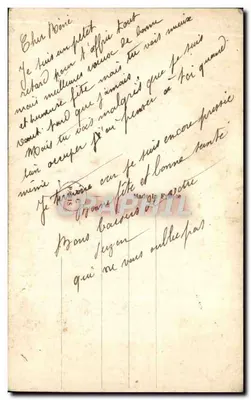 Cher René
Je suis un petit
retard pour t'offrir tout
mais meilleurs vœux de bonne
et heureuse fête mais tu vois mieux
vaut tard que jamais
Mais tu vois malgré que je suis
bien occuper j'ai penser a toi quand
même
Je termine car je suis encore pressée
Bonne fête et bonne santé
Bons baisers a
Suzon
qui ne vous oublie pas